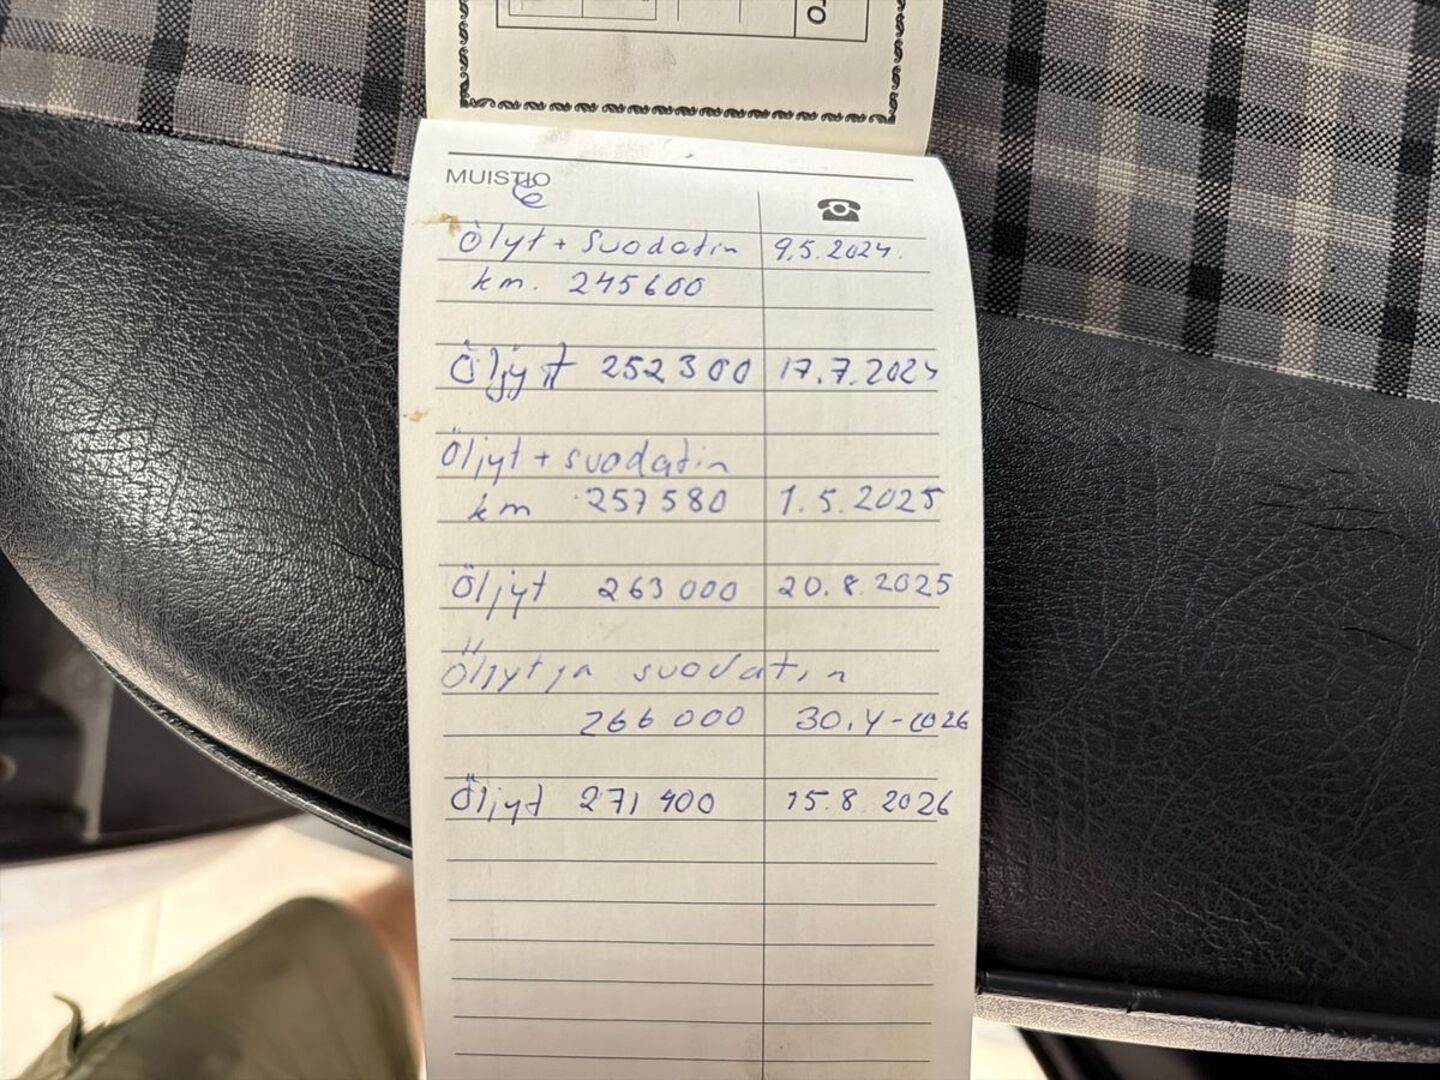 TO
MUISTIO
Ölyt + Suodatin 9.5.2024.
km. 245600
Öljyt 252300 17.7.2024
Öljyt + suodatin
km 257580 1.5.2025
Öljyt 263000 20.8.2025
Öljyt ja suodatin
266000 30.4-2026
Öljyt 271400 15.8.2026